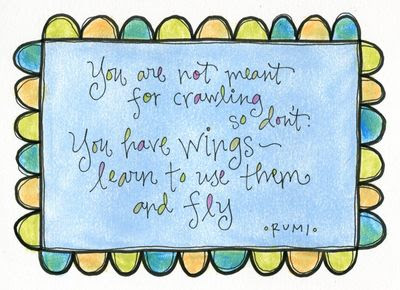 You are not meant
for crawling
so don't.
You have wings~
learn to use them
and fly
•RUMI•